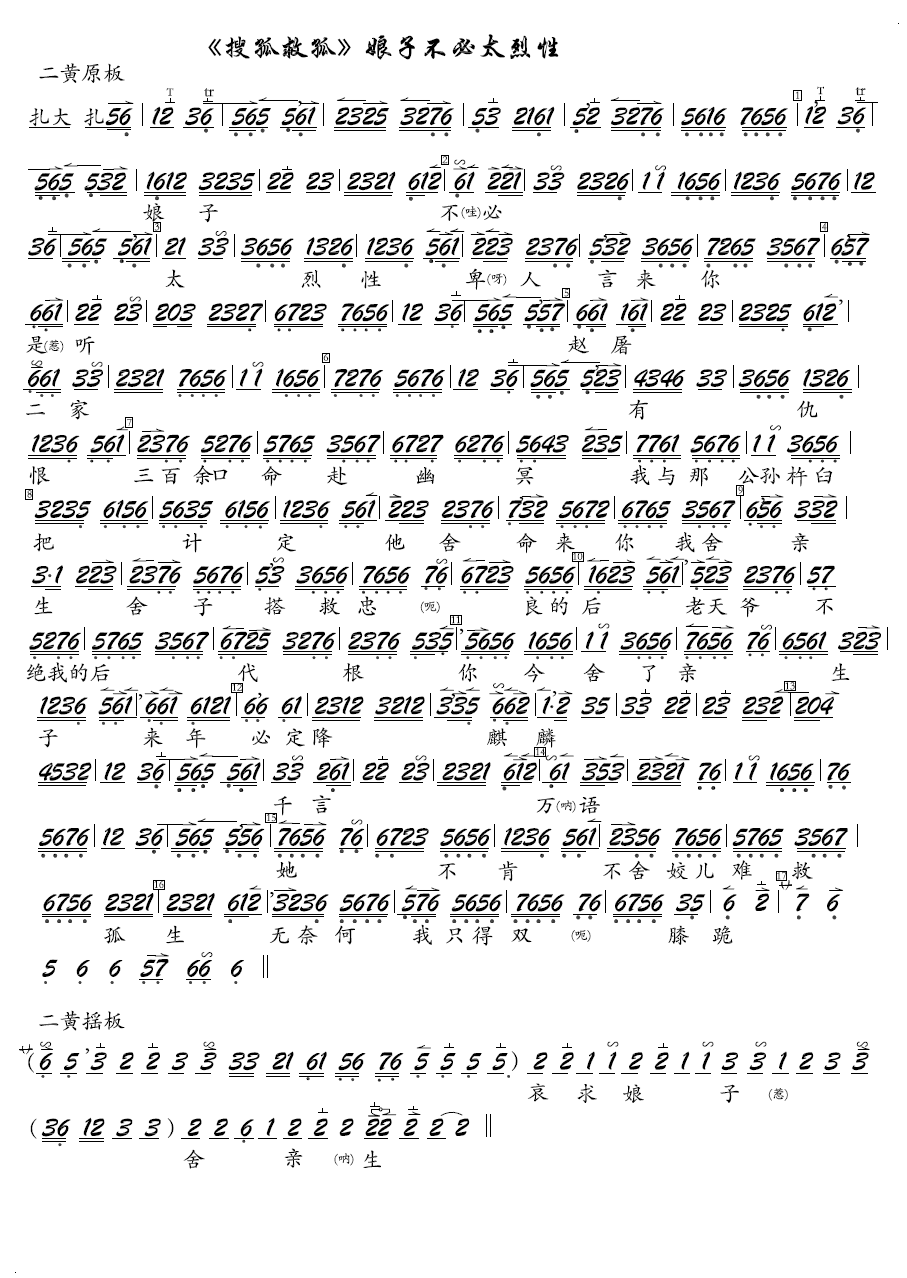 《搜孤救孤》娘子不必太烈性
二黄原板
扎大 扎56 | 12 36 | 565 561 | 2325 3276 | 53 2161 | 52 3276 | 5616 7656 | 12 36 |
565 532 | 1612 3235 | 22 23 | 2321 612 | 61 221 | 33 2326 | 11 1656 | 1236 5676 | 12
娘 子 不(哇)必
36 | 565 561 | 21 33 | 3656 1326 | 1236 561 | 223 2376 | 532 3656 | 7265 3567 | 657
太 烈 性 卑(呀)人 言 来 你
661 | 22 23 | 203 2327 | 6723 7656 | 12 36 | 565 557 | 661 161 | 22 23 | 2325 612 |
是(惹)听 赵 屠
661 33 | 2321 7656 | 11 1656 | 7276 5676 | 12 36 | 565 523 | 4346 33 | 3656 1326 |
二 家 有 仇
1236 561 | 2376 5276 | 5765 3567 | 6727 6276 | 5643 235 | 7761 5676 | 11 3656 |
恨 三百余口 命 赴 幽 冥 我与那 公孙杵臼
3235 6156 | 5635 6156 | 1236 561 | 223 2376 | 732 5672 | 6765 3567 | 656 332 |
把 计 定 他 舍 命 来 你 我舍 亲
3·1 223 | 2376 5676 | 53 3656 | 7656 76 | 6723 5656 | 1623 561 | 523 2376 | 57
生 舍 子 搭 救 忠 (呃) 良的 后 老天 爷 不
5276 | 5765 3567 | 6725 3276 | 2376 535 | 5656 1656 | 11 3656 | 7656 76 | 6561 323 |
绝我的后 代 根 你 今 舍 了 亲 生
1236 561 | 661 6121 | 66 61 | 2312 3212 | 335 662 | 1·2 35 | 33 22 | 23 232 | 204
子 来 年 必 定降 麒 麟
4532 | 12 36 | 565 561 | 33 261 | 22 23 | 2321 612 | 61 353 | 2321 76 | 11 1656 | 76
千 言 万(呐)语
5676 | 12 36 | 565 556 | 7656 76 | 6723 5656 | 1236 561 | 2356 7656 | 5765 3567 |
她 不 肯 不 舍 姣 儿 难 救
6756 2321 | 2321 612 | 3236 5676 | 576 5656 | 7656 76 | 6756 35 | 6 2 | 7 6
孤 生 无 奈 何 我 只 得 双 (呃) 膝 跪
5 6 6 57 66 6 ‖
二黄摇板
(6 5 3 2 2 3 3 33 21 61 56 76 5 5 5 5) 2 2 1 1 2 2 1 1 3 3 1 2 3 3
哀 求 娘 子 (惹)
(36 12 3 3) 2 2 6 1 2 2 2 22 2 2 2 ‖
舍 亲 (呐) 生